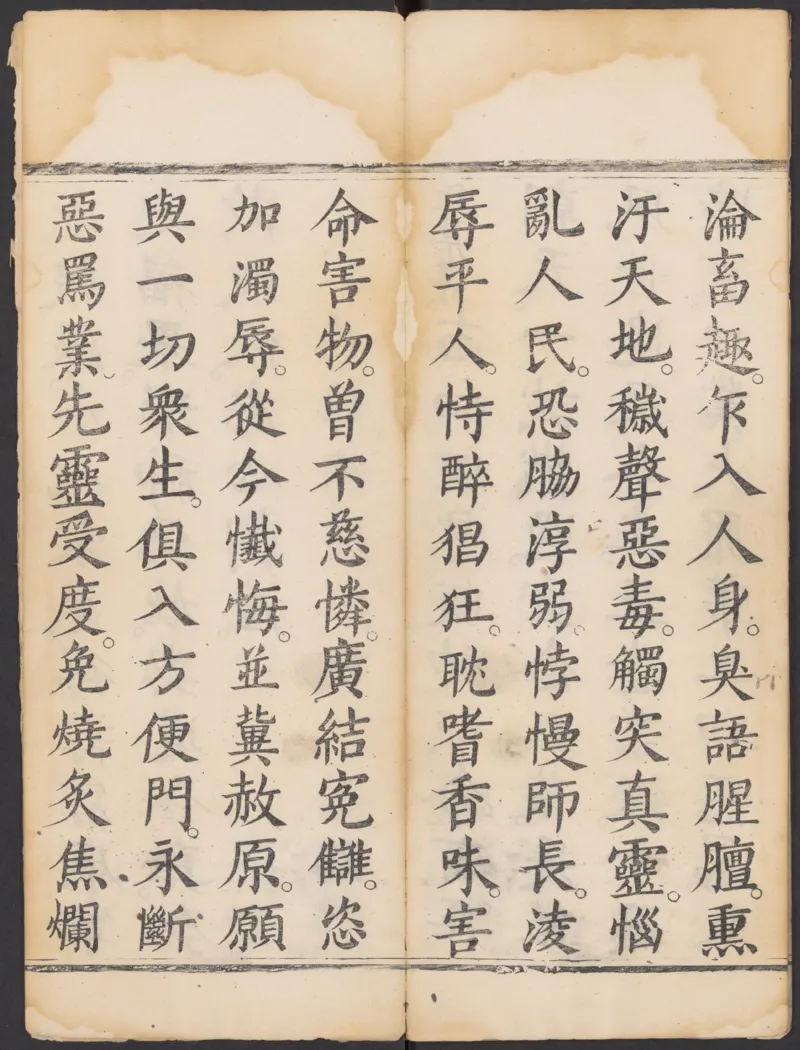 淪畜趣。乍入人身。臭語腥膻。熏
汙天地。穢聲惡毒。觸突真靈。惱
亂人民。恐脇淳弱。悖慢師長。淩
辱平人。恃醉猖狂。耽嗜香味。害
命害物。曾不慈憐。廣結寃讎。恣
加濁辱。從今懺悔。並冀赦原。願
與一切衆生。俱入方便門。永斷
惡罵業。先靈受度。免燒炙焦爛